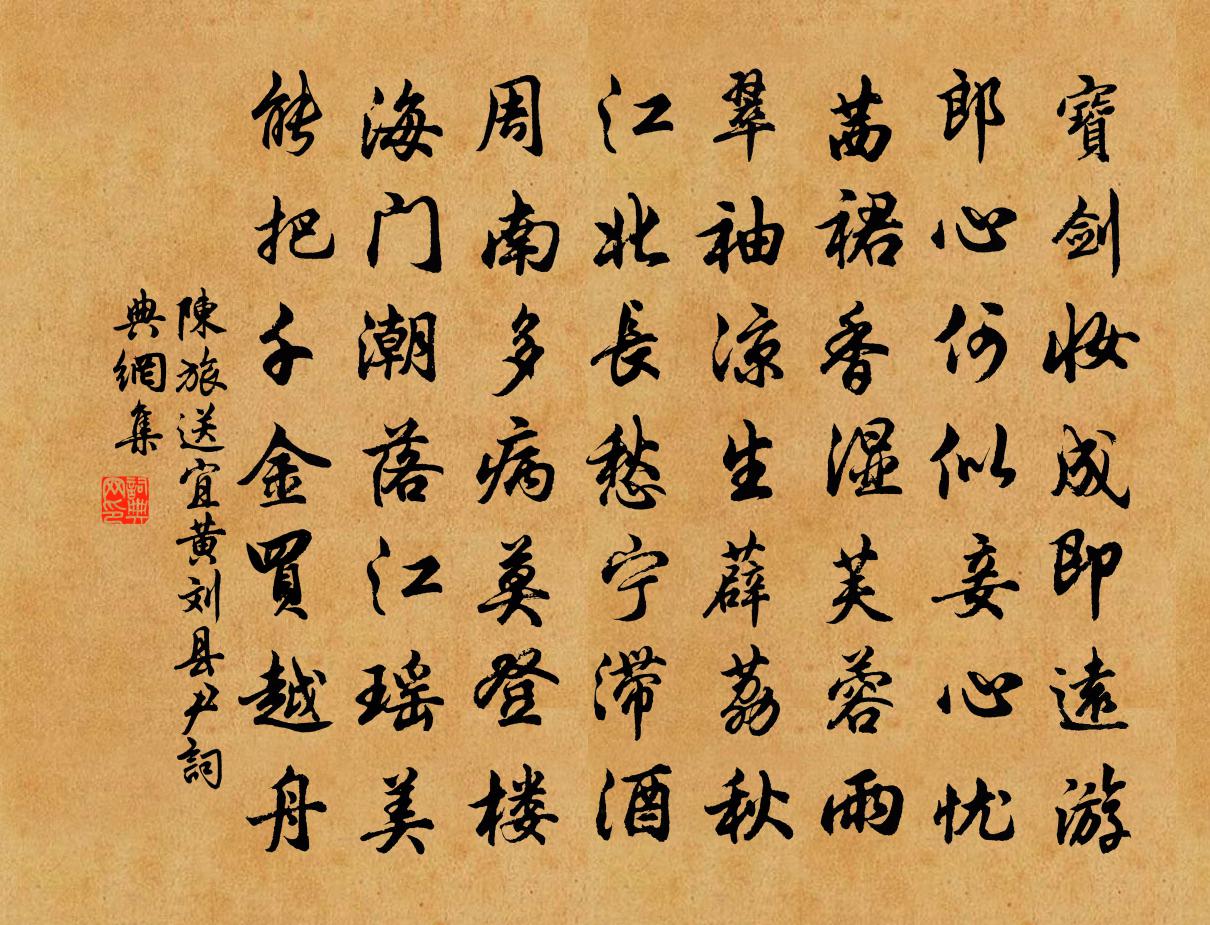 寶剑妆成即遠游
郎心何似妾心忧
茜裙香湿芙蓉雨
翠袖凉生薜荔秋
江北長愁宁滞酒
周南多病莫登楼
海门潮落江瑶美
能把千金買越舟
陳旅送宜黄刘县尹詞
典網集
詞典
网印